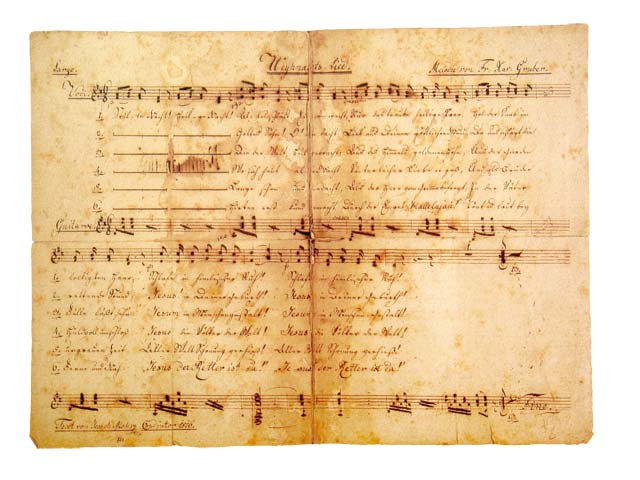 Largo. Weyhnachts-Lied. Melodie von Fr. Xav. Gruber.
Voce.
1. Stille Nacht! Heilige Nacht! Alles schläft. Einsam wacht. Nur das traute heilige Paar. Holder Knab im
2. Gottes Sohn! O! wie lacht Lieb aus Deinem göttlichen Mund, Da uns schlägt die
3. Die der Welt Heil gebracht, Aus des Himmels goldenen Höhn, Uns der Gnaden
4. Wo sich heut alle Macht Väterlicher Liebe ergoß, Und als Bruder
5. Lange schon uns bedacht, Als der Herr vom Grimme befreyt In der Väter
6. Hirten erst kundgemacht Durch der Engel Hallelujah! Tönt es laut bey
Guitarre
1. lockigten Haar, Schlafe in himmlischer Ruh! Schlafe in himmlischer Ruh!
2. rettende Stund. Jesus in Deiner Geburt! Jesus in Deiner Geburt!
3. Fülle läßt sehn Jesum in Menschengestalt! Jesum in Menschengestalt!
4. huldvoll umschloß Jesus die Völker der Welt! Jesus die Völker der Welt!
5. urgrauer Zeit Aller Welt Schonung verhieß! Aller Welt Schonung verhieß!
6. Ferne und Nah: Jesus der Retter ist da! Jesus der Retter ist da!
Fine.
Text von Joseph Mohr Coadjutor 1816.